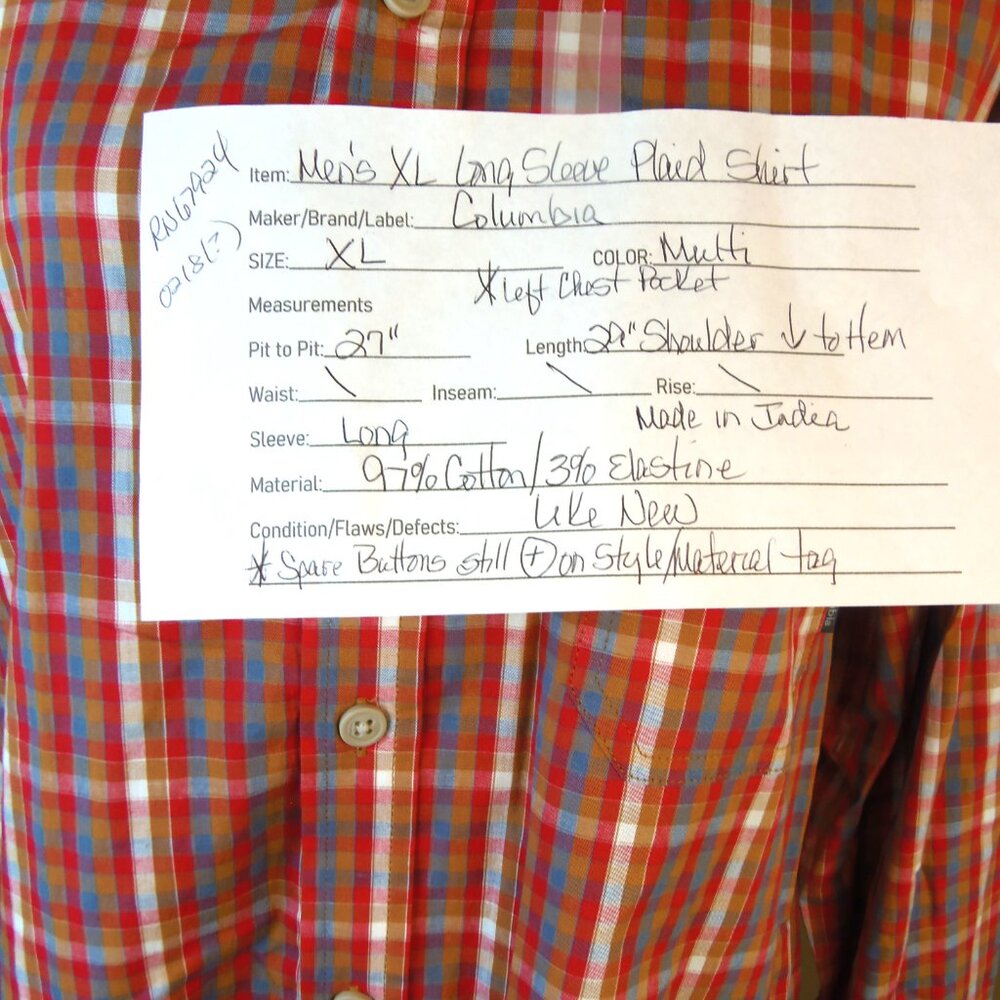 RN67424
0218(?)
Item: Men's XL Long Sleeve Plaid Shirt
Maker/Brand/Label: Columbia
SIZE: XL COLOR: Multi
*Left Chest Pocket
Measurements
Pit to Pit: 27" Length: 29" Shoulder ↓ to Hem
Waist: \ Inseam: \ Rise: \
Made in India
Sleeve: Long
Material: 97% Cotton/3% Elastine
Condition/Flaws/Defects: Like New
* Spare Buttons still (+) on Style/Material tag